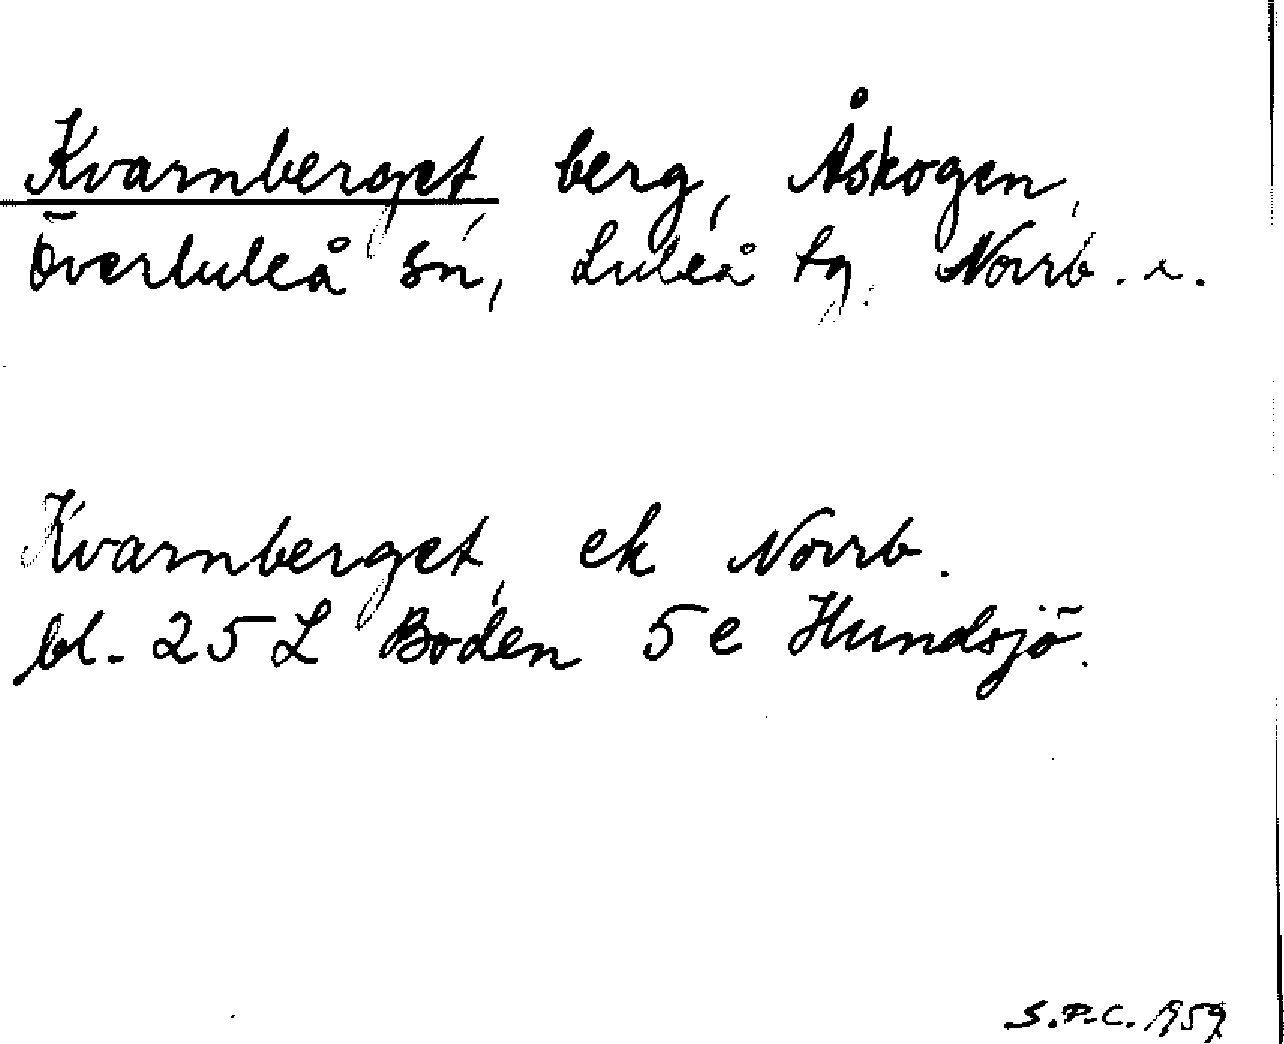 Kvarnberget berg, Åskogen,
Överluleå sn, Luleå tg. Norrb.
Kvarnberget, ek Norrb.
bl. 25 L Boden 5 e Hundsjö.
S.P.C. 1959